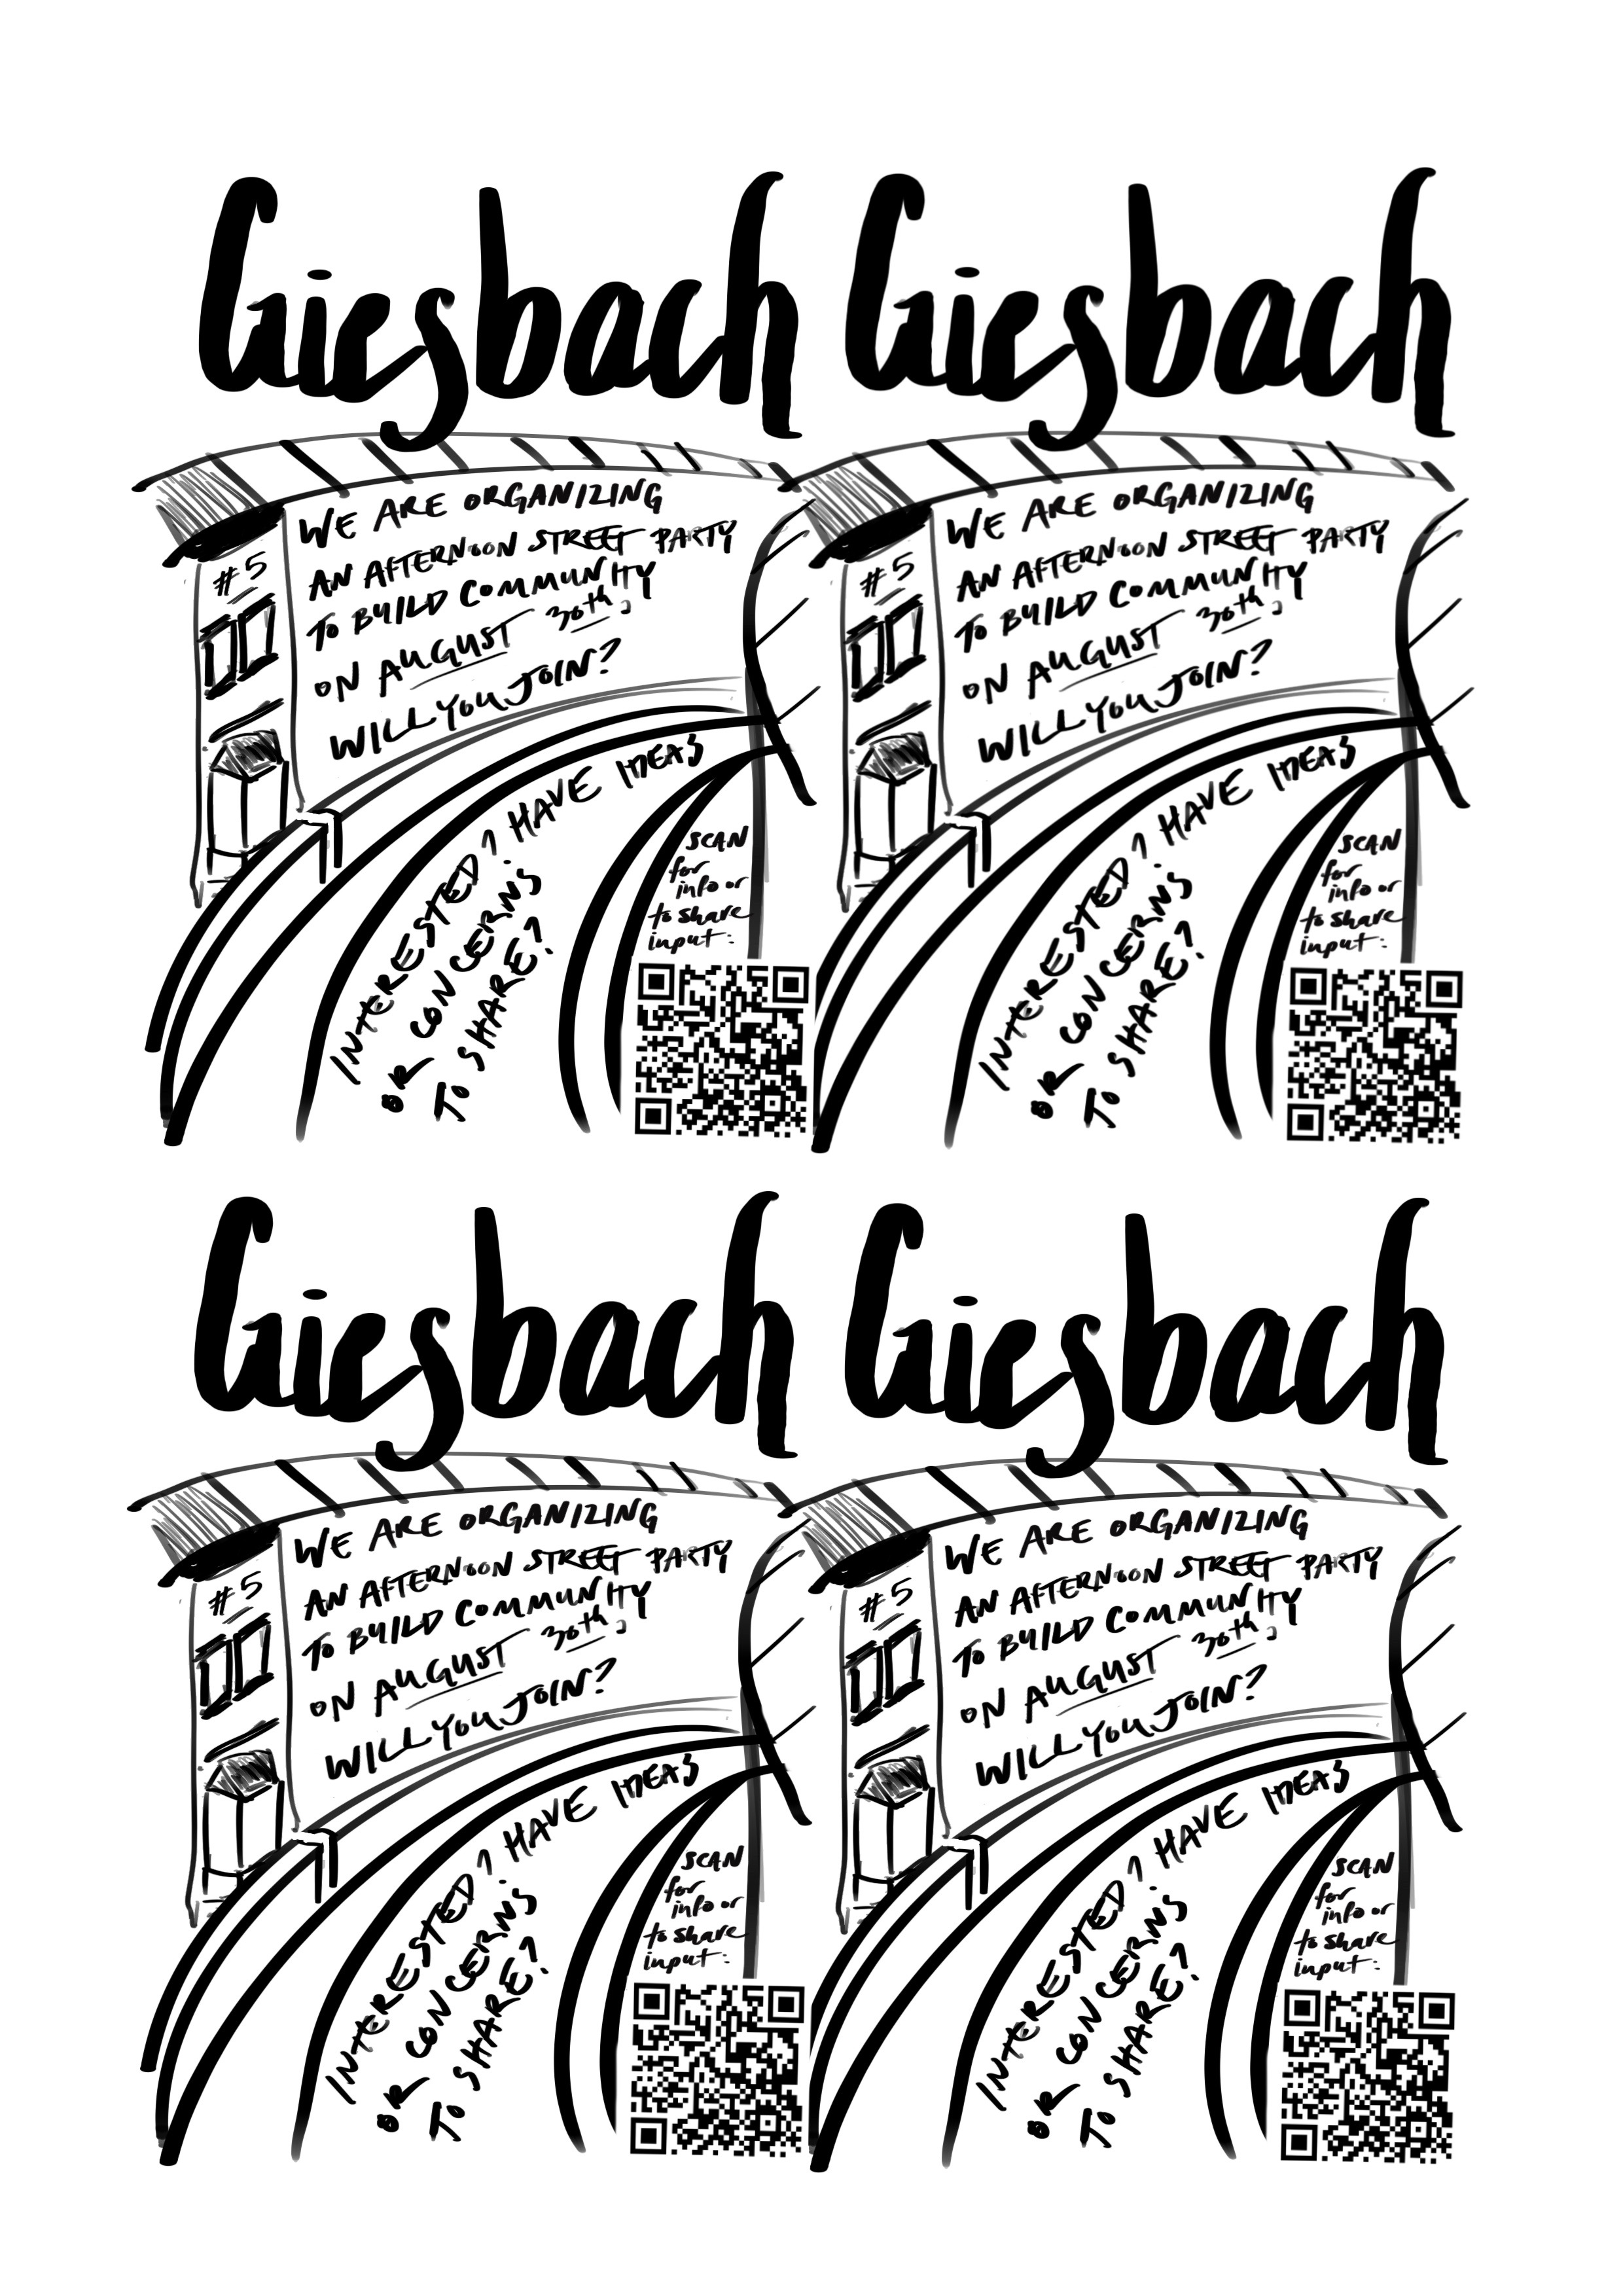 Giesbach
WE ARE ORGANIZING
AN AFTERNOON STREET PARTY
TO BUILD COMMUNITY
ON AUGUST 30th.
WILL YOU JOIN?
#5
INTERESTED? HAVE IDEAS
OR CONCERNS
TO SHARE?
SCAN
for
info or
to share
input:
Giesbach
WE ARE ORGANIZING
AN AFTERNOON STREET PARTY
TO BUILD COMMUNITY
ON AUGUST 30th.
WILL YOU JOIN?
#5
INTERESTED? HAVE IDEAS
OR CONCERNS
TO SHARE?
SCAN
for
info or
to share
input:
Giesbach
WE ARE ORGANIZING
AN AFTERNOON STREET PARTY
TO BUILD COMMUNITY
ON AUGUST 30th.
WILL YOU JOIN?
#5
INTERESTED? HAVE IDEAS
OR CONCERNS
TO SHARE?
SCAN
for
info or
to share
input:
Giesbach
WE ARE ORGANIZING
AN AFTERNOON STREET PARTY
TO BUILD COMMUNITY
ON AUGUST 30th.
WILL YOU JOIN?
#5
INTERESTED? HAVE IDEAS
OR CONCERNS
TO SHARE?
SCAN
for
info or
to share
input: